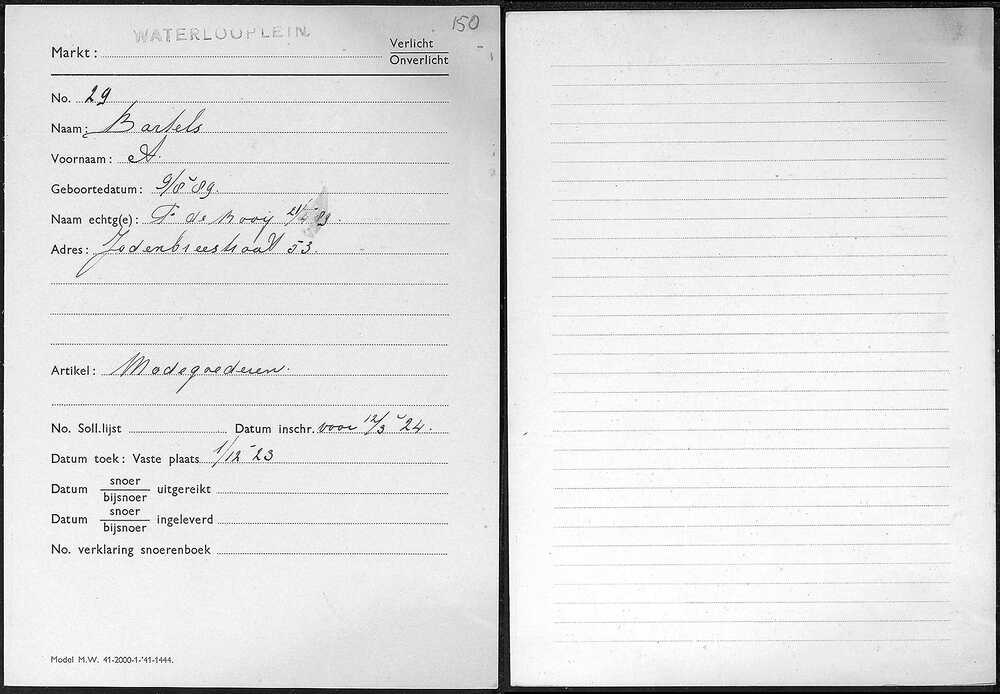 150
WATERLOOPLEIN.
Markt :
Verlicht
Onverlicht
No. 29
Naam: Bartels
Voornaam : A.
Geboortedatum : 9/8 '89.
Naam echtg(e) : F. de Rooij 21/4 '89.
Adres : Jodenbreestraat 53.
Artikel : Modegoederen.
No. Soll.lijst Datum inschr. voor 12/3 '24.
Datum toek: Vaste plaats 1/12 '23
Datum snoer/bijsnoer uitgereikt
Datum snoer/bijsnoer ingeleverd
No. verklaring snoerenboek
Model M.W. 41-2000-1-'41-1444.